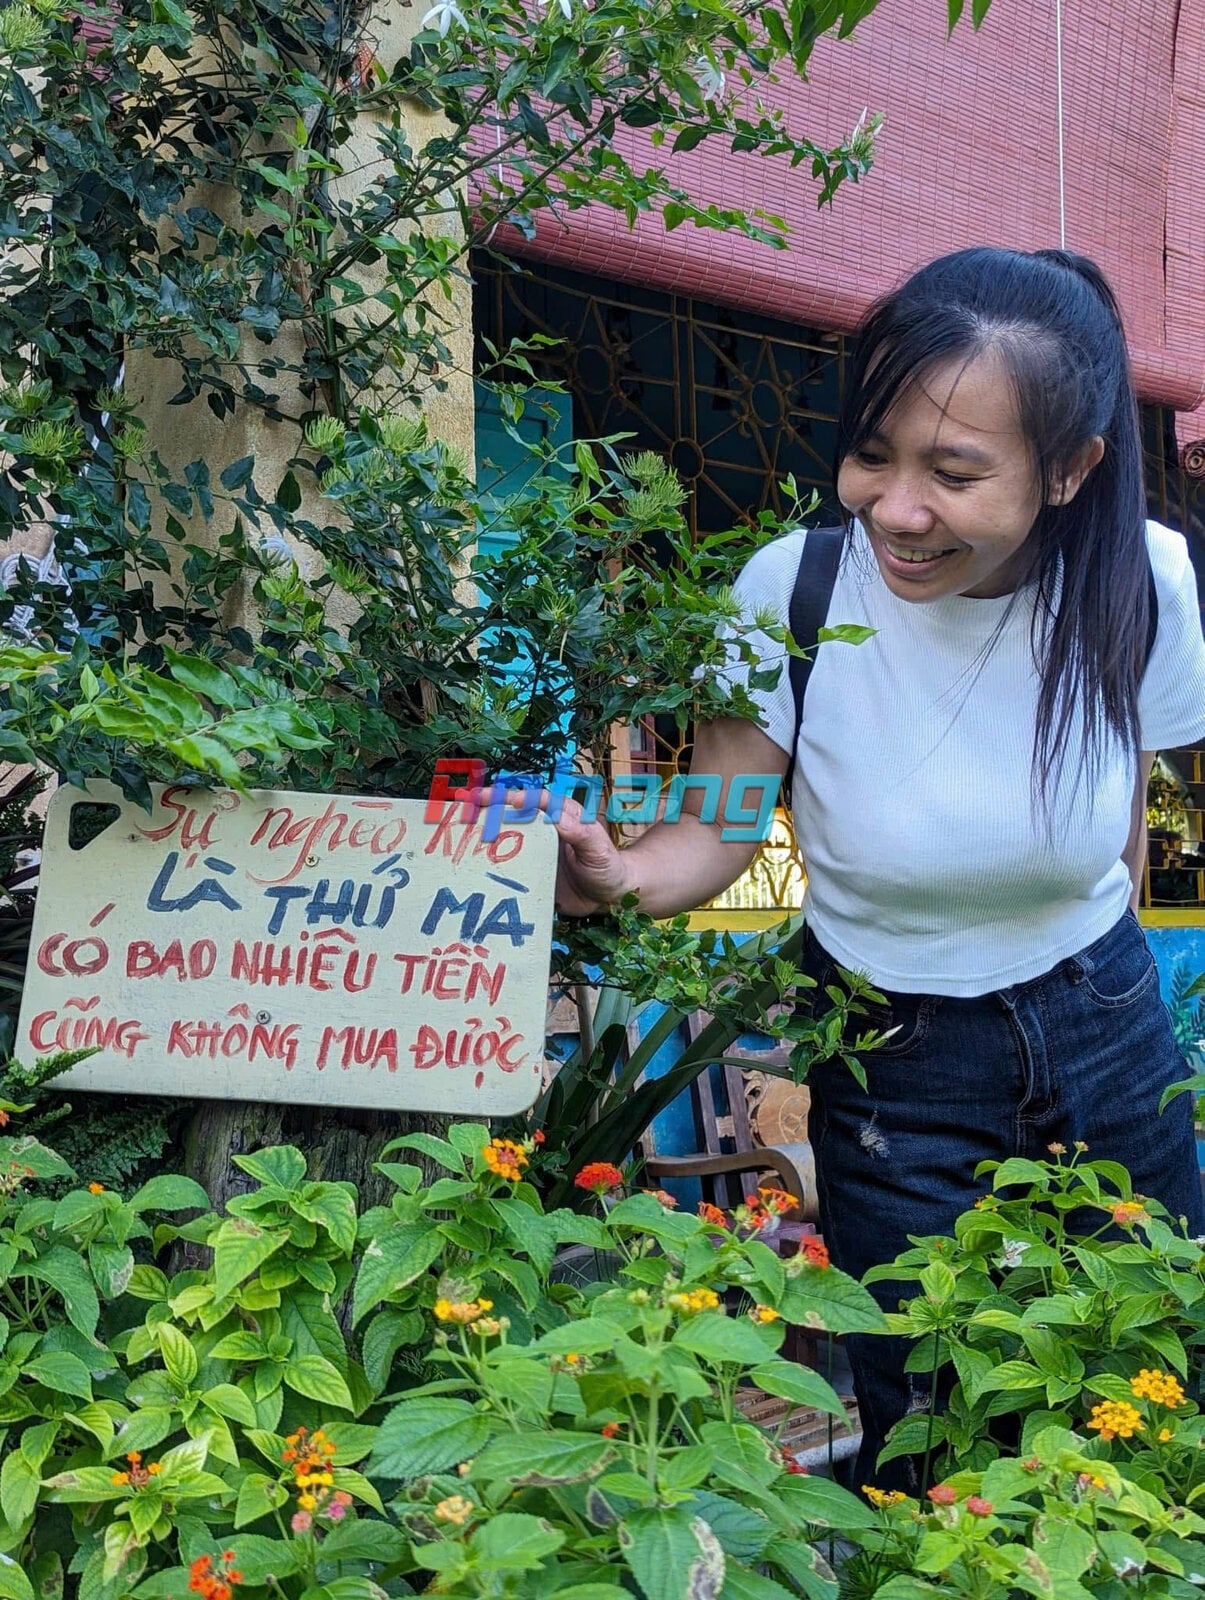 Sự nghèo khó
LÀ THỨ MÀ
CÓ BAO NHIÊU TIỀN
CŨNG KHÔNG MUA ĐƯỢC.
Rphang